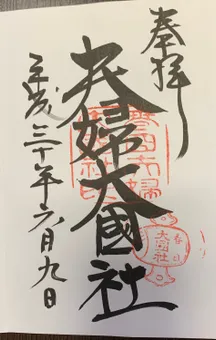 奉拝
夫婦大國社
平成三十年六月九日
春日
大國社